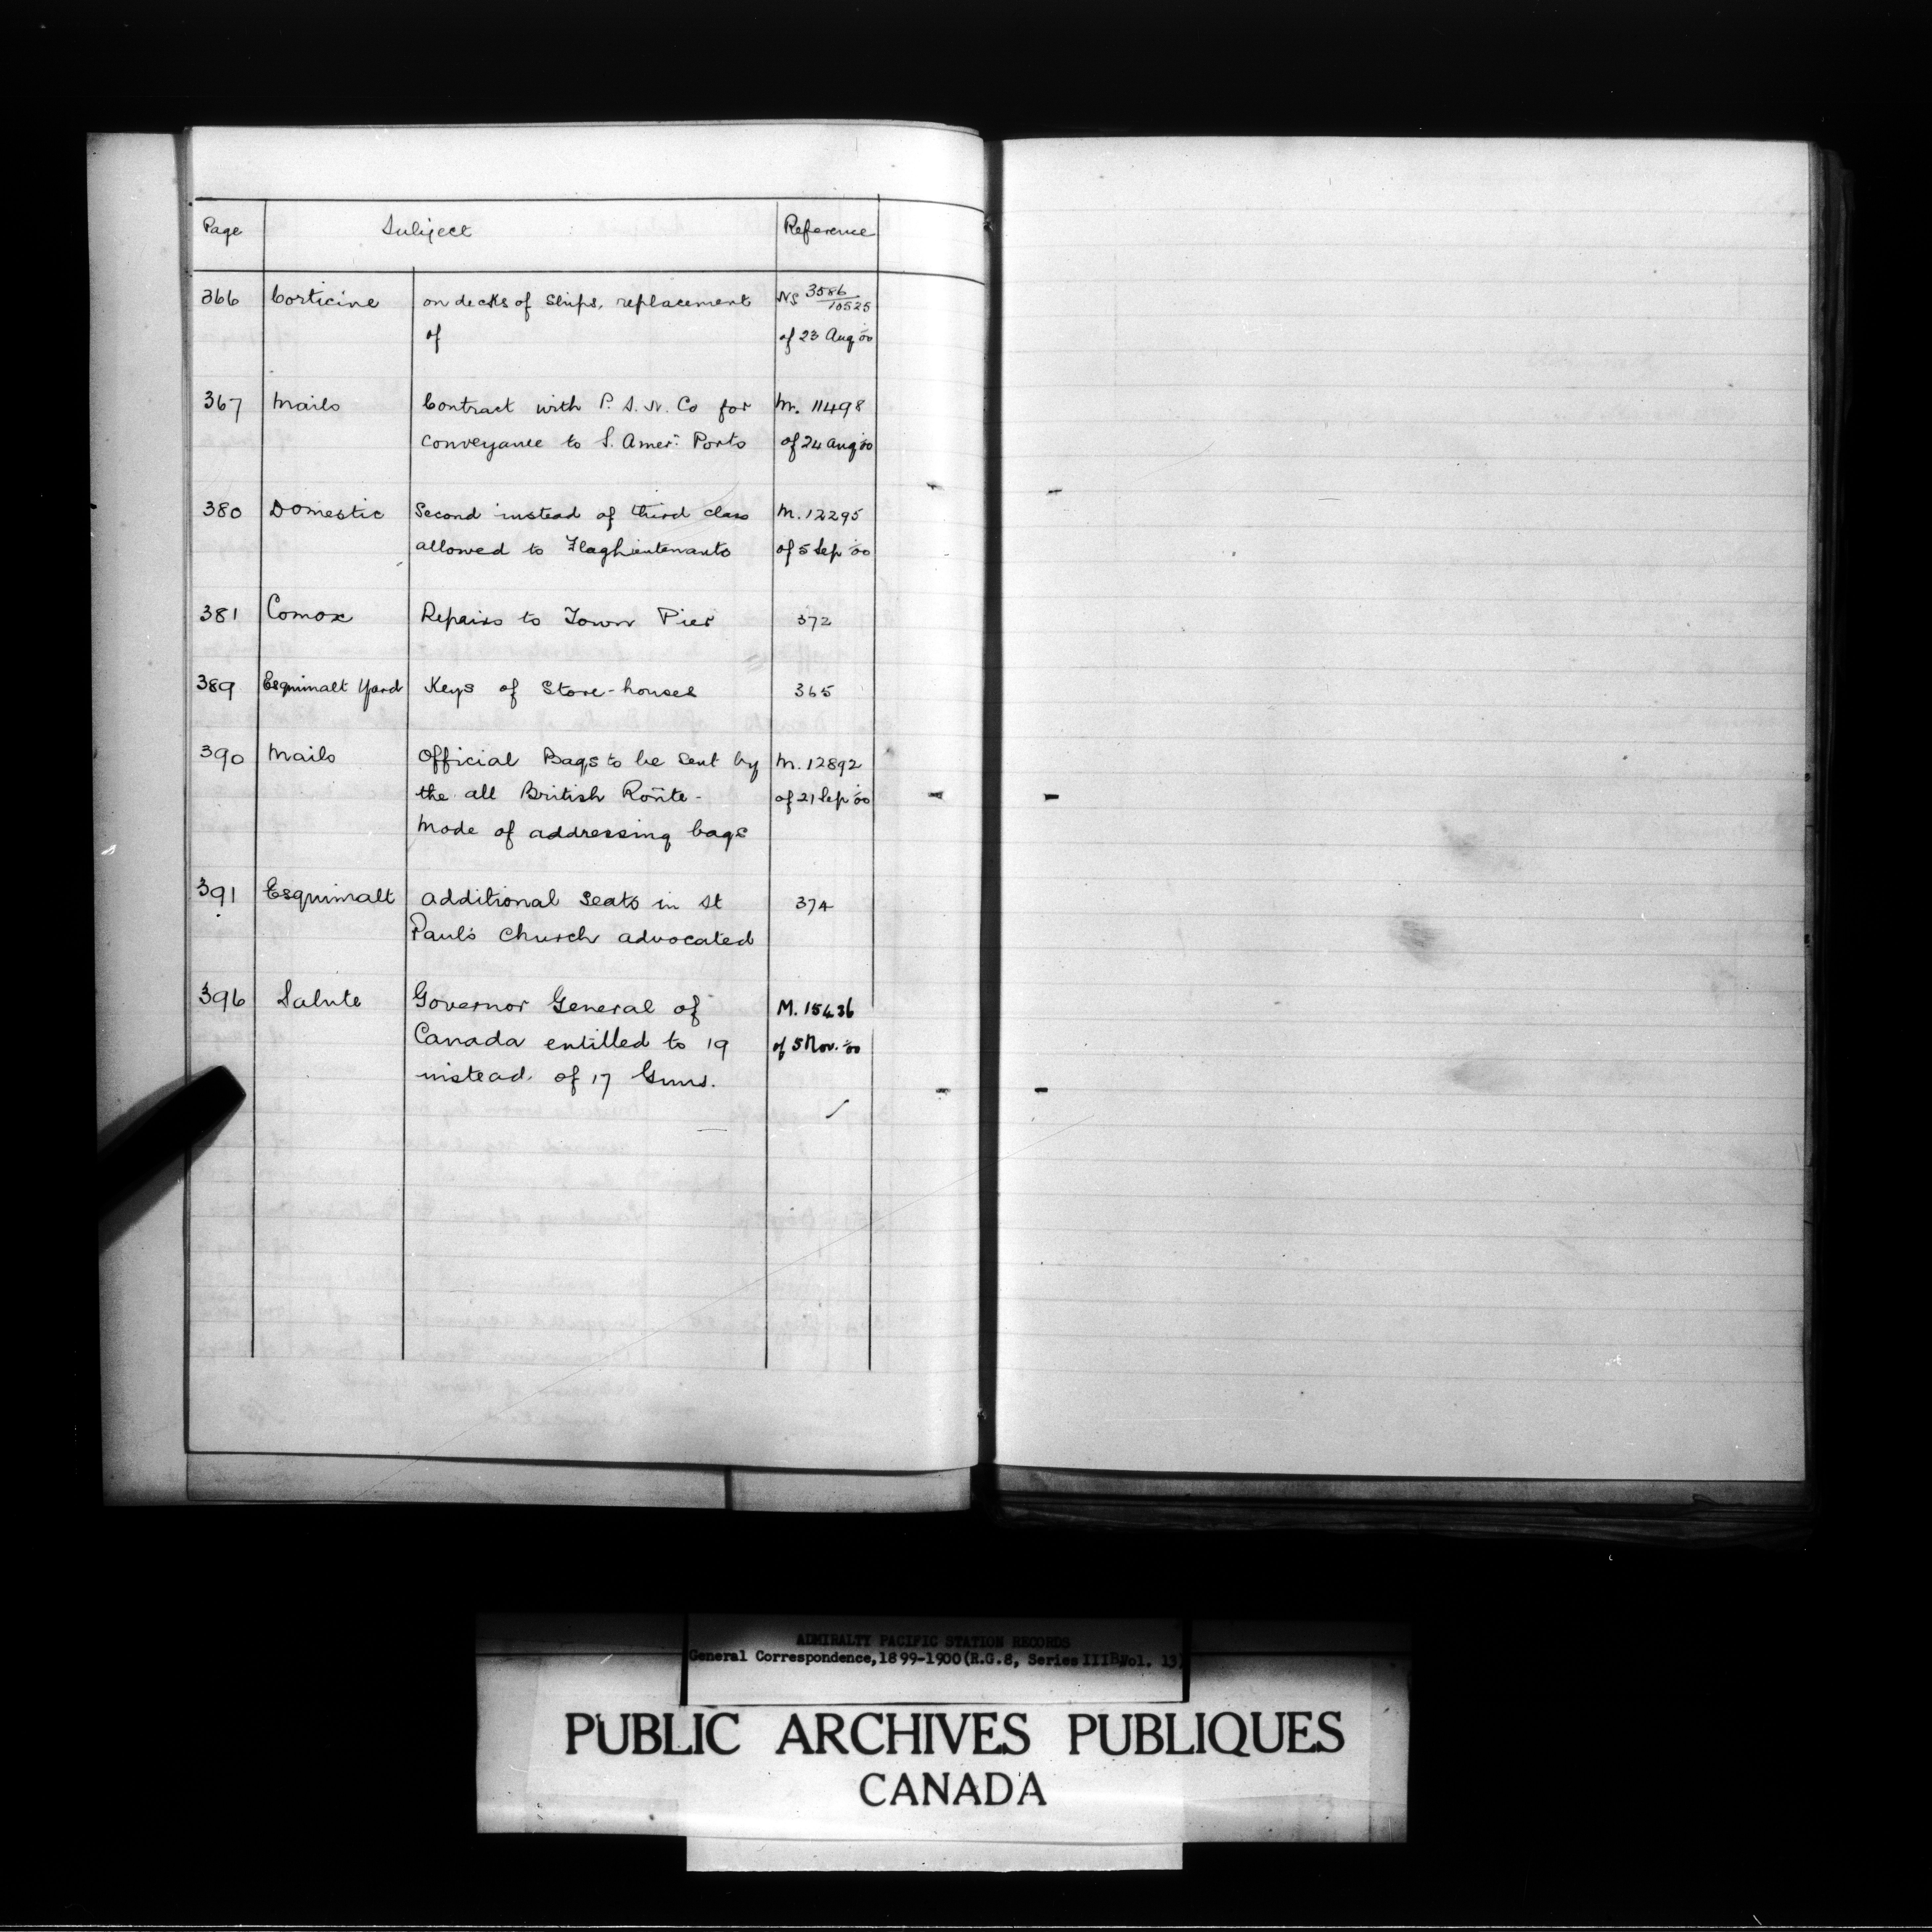 Page Subject Reference
366 Corticine on decks of Ships, replacement NS 3586/10525
of of 23 Aug '00
367 Mails Contract with P. S. N. Co for M. 11498
conveyance to S. Amer: Ports of 24 Aug '00
380 Domestic Second instead of third class M. 12295
allowed to Flag Lieutenants of 5 Sep '00
381 Comox Repairs to Town Pier 372
389 Esquimalt Yard Keys of Store-houses 365
390 Mails Official Bags to be sent by M. 12892
the all British Route - of 21 Sep '00
Mode of addressing bags
391 Esquimalt Additional Seats in St 374
Paul's Church advocated
396 Salute Governor General of M. 15436
Canada entitled to 19 of 5 Nov. '00
instead of 17 Guns.
ADMIRALTY PACIFIC STATION RECORDS
General Correspondence, 1899-1900 (R.G.8, Series IIIB, Vol. 13)
PUBLIC ARCHIVES PUBLIQUES
CANADA